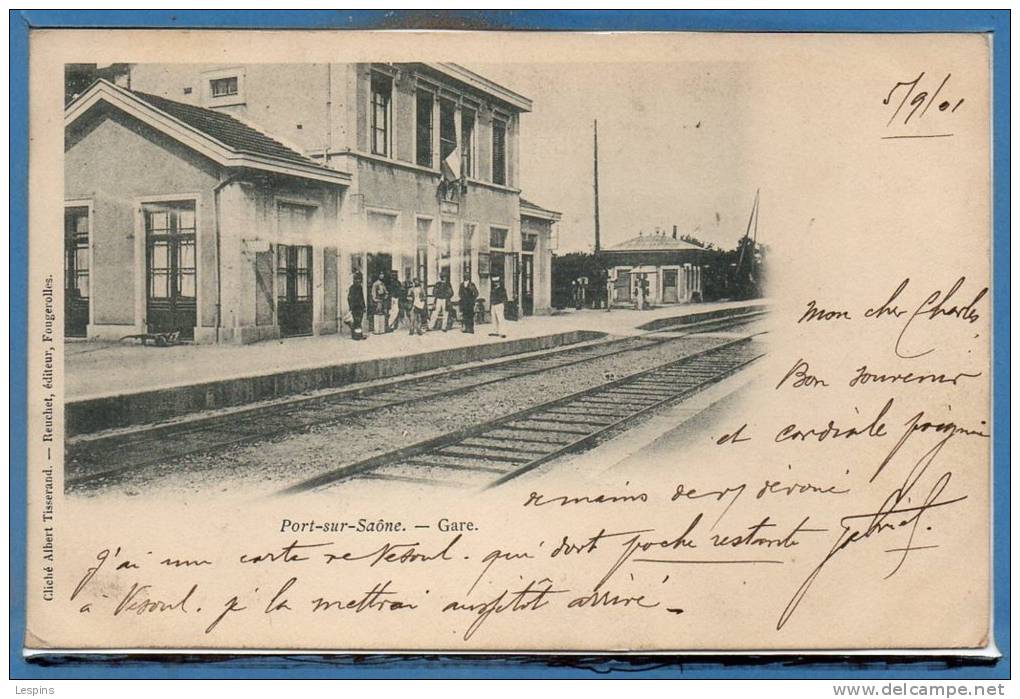 5/9/01
Mon cher Charles,
Bon souvenir
et cordiale poignée
de mains de
Gabriel.
Port-sur-Saône. — Gare.
J'ai une carte de Vesoul. qui dort poste restante
à Vesoul. je la mettrai aussitôt arrivé —
Cliché Albert Tisserand. — Reuchet, éditeur, Fougerolles.
Lespins
www.delcampe.net